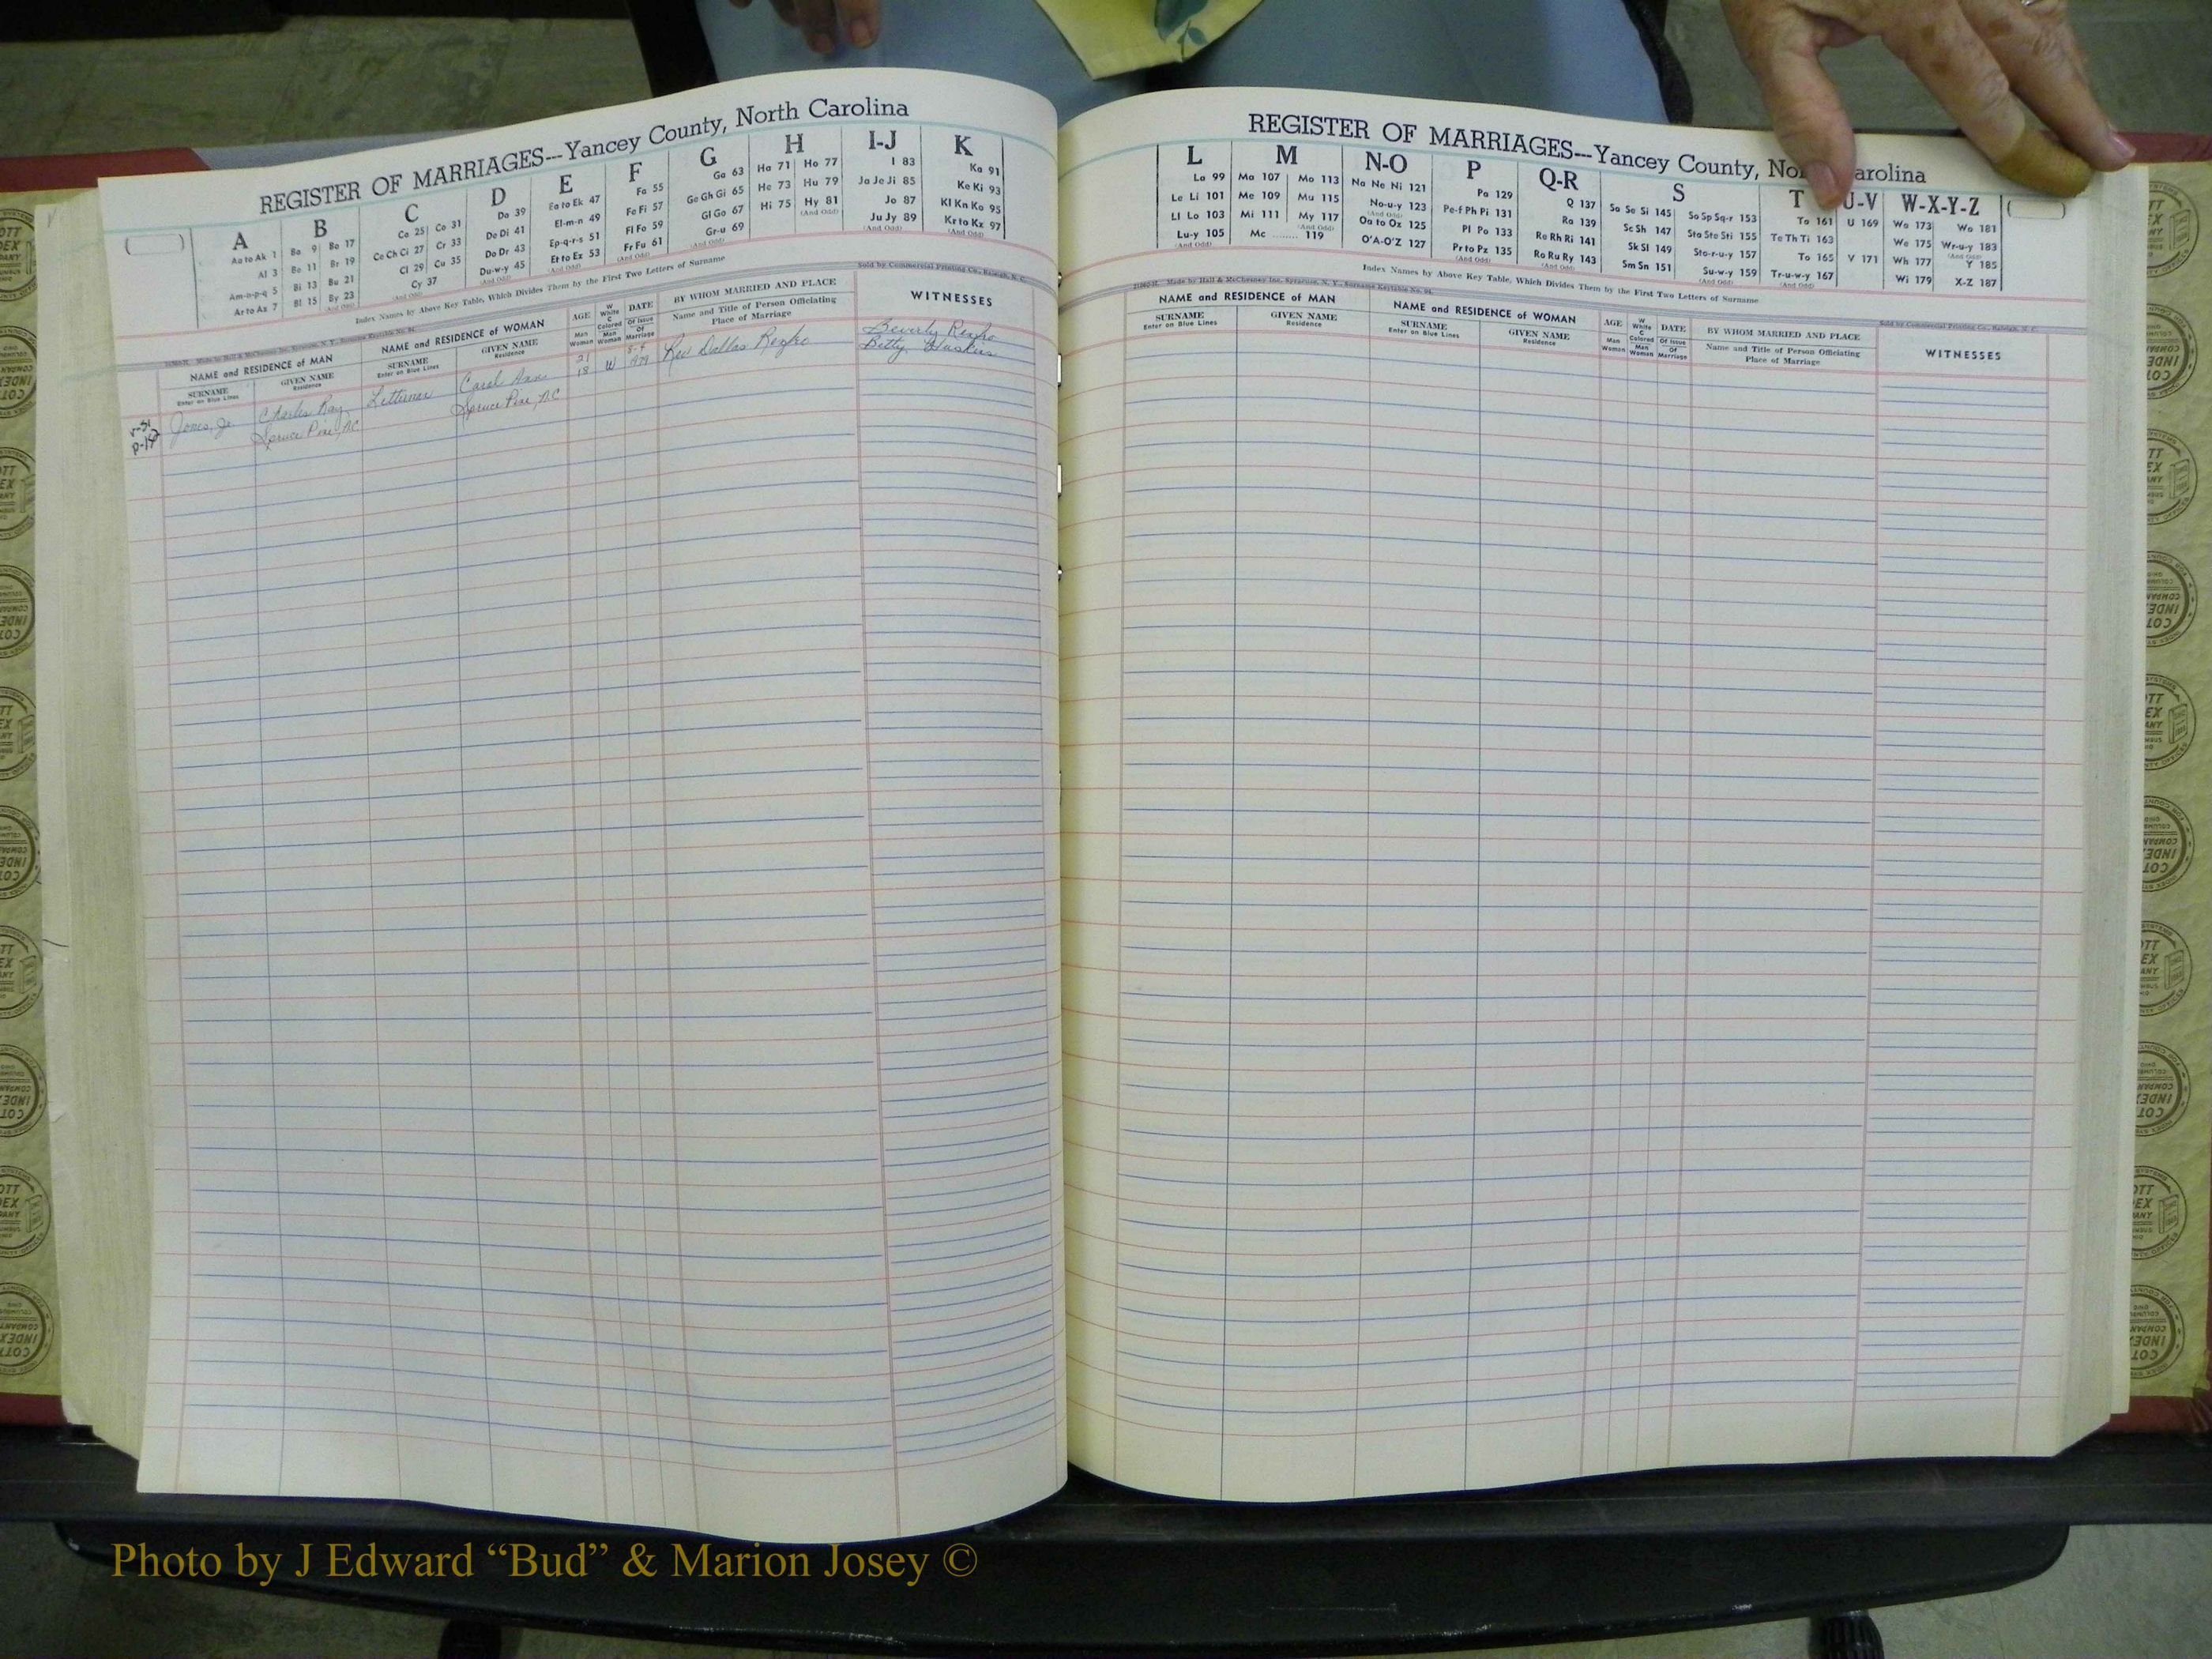 REGISTER OF MARRIAGES---Yancey County, North Carolina
A B C D E F G H I-J K
Aa to Ak 1
Al 3
Am-n-p-q 5
Ar to Az 7
Ba 9 Bo 17
Be 11 Br 19
Bi 13 Bu 21
Bl 15 By 23
(And Odd)
Ca 25 Co 31
Ce Ch Ci 27 Cr 33
Cl 29 Cu 35
Cy 37
(And Odd)
Da 39
De Di 41
Do Dr 43
Du-w-y 45
(And Odd)
Ea to Ek 47
El-m-n 49
Ep-q-r-s 51
Et to Ez 53
(And Odd)
Fa 55
Fe Fi 57
Fl Fo 59
Fr Fu 61
(And Odd)
Ga 63
Ge Gh Gi 65
Gl Go 67
Gr-u 69
(And Odd)
Ha 71 Ho 77
He 73 Hu 79
Hi 75 Hy 81
(And Odd)
I 83
Ja Je Ji 85
Jo 87
Ju Jy 89
(And Odd)
Ka 91
Ke Ki 93
Kl Kn Ko 95
Kr to Kz 97
(And Odd)
Index Names by Above Key Table, Which Divides Them by the First Two Letters of Surname
Sold by Commercial Printing Co., Raleigh, N. C.
NAME and RESIDENCE of MAN
SURNAME
Enter on Blue Lines
GIVEN NAME
Residence
NAME and RESIDENCE of WOMAN
SURNAME
Enter on Blue Lines
GIVEN NAME
Residence
AGE
Man
Woman
W
White
C
Colored
Man
Woman
DATE
Of Issue
Of
Marriage
BY WHOM MARRIED AND PLACE
Name and Title of Person Officiating
Place of Marriage
WITNESSES
Jones, Jr. Charles Ray Carol Ann 21 W 8-4 Rev Dallas Renfro Beverly Renfro
Spruce Pine, NC Spruce Pine, NC 18 1979 Betty
REGISTER OF MARRIAGES---Yancey County, Nor arolina
L M N-O P Q-R S T U-V W-X-Y-Z
La 99
Le Li 101
Ll Lo 103
Lu-y 105
(And Odd)
Ma 107 Mo 113
Me 109 Mu 115
Mi 111 My 117
(And Odd)
Mc ........ 119
Na Ne Ni 121
No-u-y 123
(And Odd)
Oa to Oz 125
O'A-O'Z 127
Pa 129
Pe-f Ph Pi 131
Pl Po 133
Pr to Pz 135
(And Odd)
Q 137
Ra 139
Re Rh Ri 141
Ro Ru Ry 143
(And Odd)
Sa Se Si 145 So Sp Sq-r 153
Sc Sh 147 Sta Ste Sti 155
Sk Sl 149 Sto-r-u-y 157
Sm Sn 151 Su-w-y 159
(And Odd)
Ta 161
Te Th Ti 163
To 165
Tr-u-w-y 167
(And Odd)
U 169
V 171
Wa 173 Wo 181
We 175 Wr-u-y 183
(And Odd)
Wh 177 Y 185
Wi 179 X-Z 187
Index Names by Above Key Table, Which Divides Them by the First Two Letters of Surname
Made by Hall & McChesney Inc. Syracuse, N. Y.
Sold by Commercial Printing Co., Raleigh, N. C.
NAME and RESIDENCE of MAN
SURNAME
Enter on Blue Lines
GIVEN NAME
Residence
NAME and RESIDENCE of WOMAN
SURNAME
Enter on Blue Lines
GIVEN NAME
Residence
AGE
Man
Woman
W
White
C
Colored
Man
Woman
DATE
Of Issue
Of
Marriage
BY WHOM MARRIED AND PLACE
Name and Title of Person Officiating
Place of Marriage
WITNESSES
Photo by J Edward “Bud” & Marion Josey ©